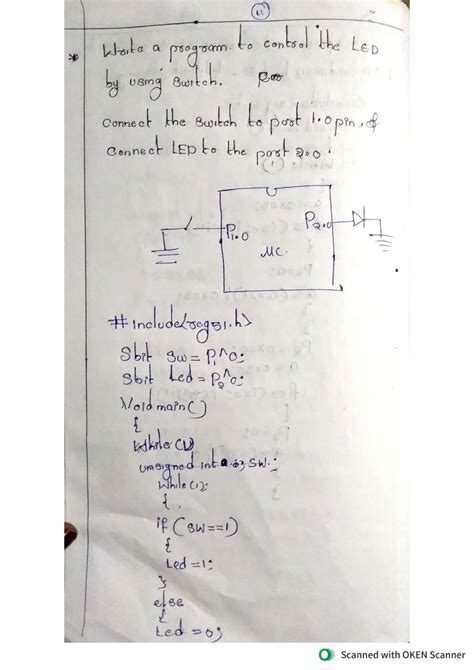 11
* Write a program to control the LED
by using switch.
Connect the switch to port 1.0 pin, &
Connect LED to the port 2.0.
P1.0
P2.0
MC.
#include<reg51.h>
Sbit SW = P1^0;
Sbit Led = P2^0;
Void main()
{
While(1)
unsigned int SW;
While(1);
{
if (SW==1)
{
Led =1;
}
else
{
Led =0;
Scanned with OKEN Scanner